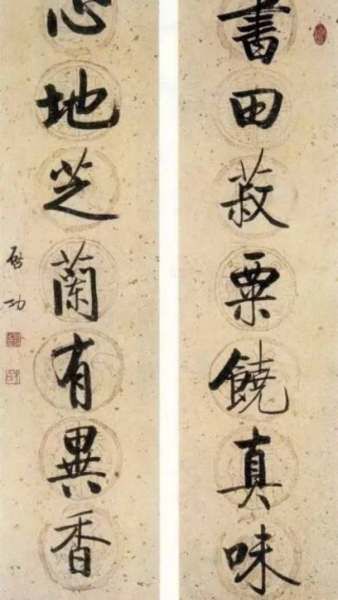 書田菽粟饒真味
心地芝蘭有異香
启功